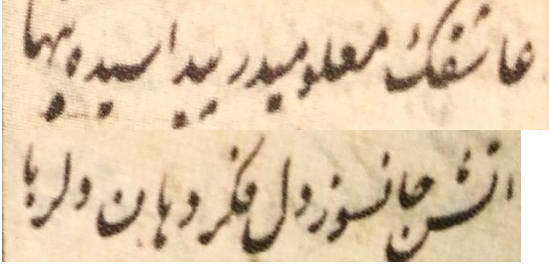 عاشقك معلومیدر پیداسیده پنها
اتش جانسوز دل فكر دهان دلربا